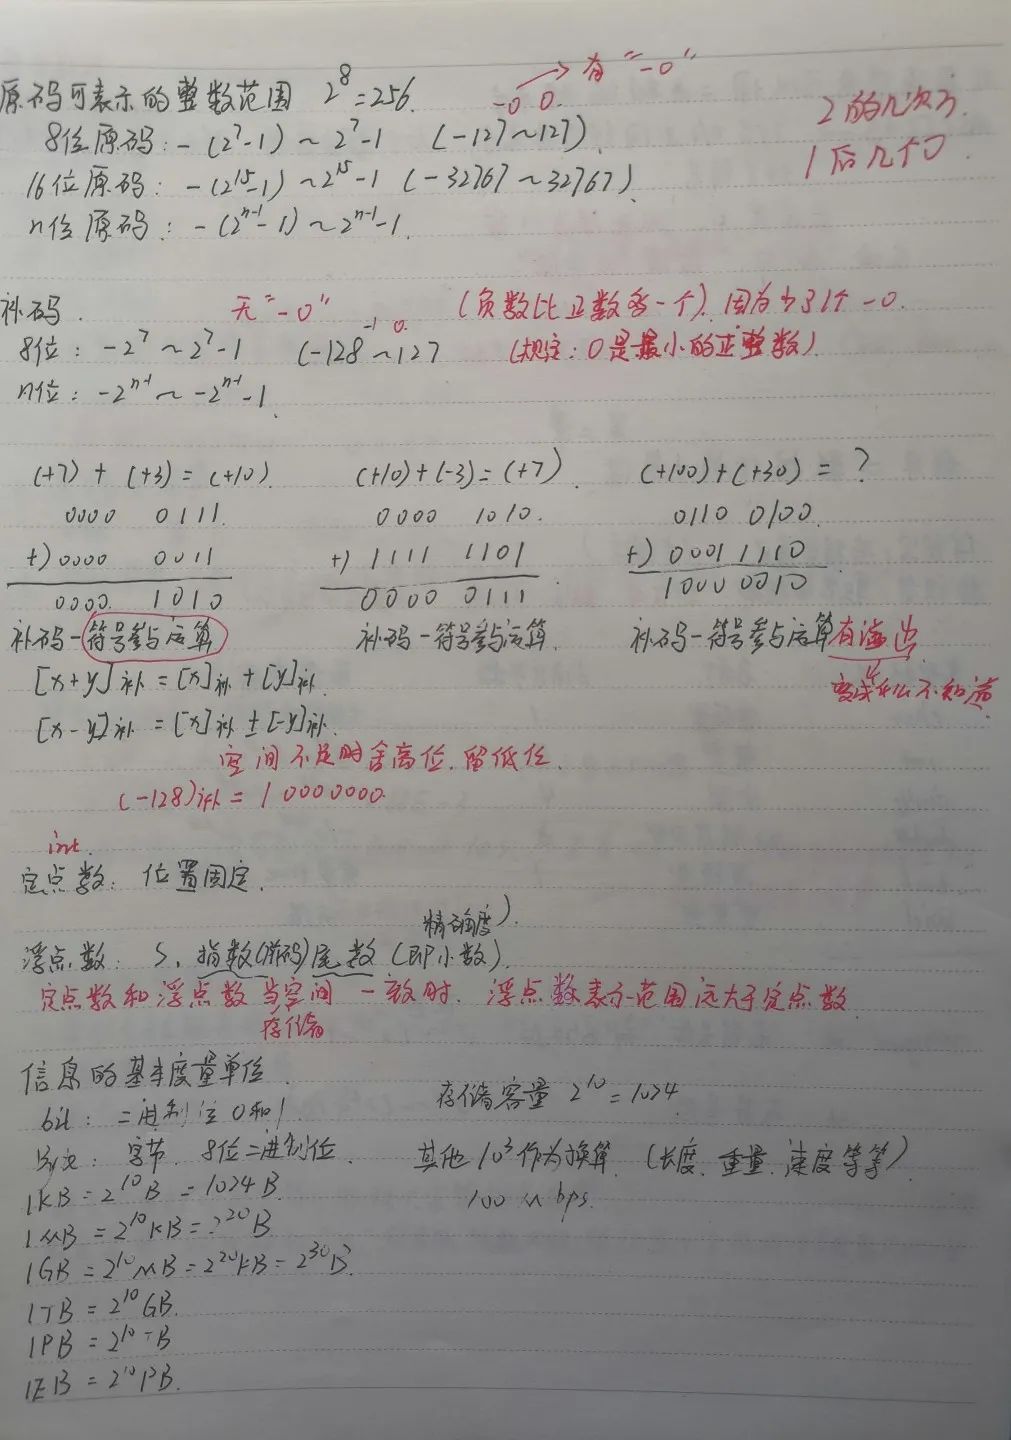 原码可表示的整数范围 2^8=256. -0 0. → 有"-0"
8位原码: -(2^7-1) ~ 2^7-1 (-127~127).
2的几次方.
1后几个0.
16位原码: -(2^15-1) ~ 2^15-1 (-32767~32767).
n位原码: -(2^n-1-1) ~ 2^n-1-1.
补码. 无"-0" (负数比正数多一个). 因为少了1个-0.
8位: -2^7 ~ 2^7-1 (-128 ~ 127 -1 0. (规定: 0是最小的正整数)
n位: -2^n-1 ~ -2^n-1-1.
(+7) + (+3) = (+10). (+10)+(-3)=(+7). (+100)+(+30) = ?
0000 0111. 0000 1010. 0110 0100.
+) 0000 0011 +) 1111 1101 +) 0001 1110
0000. 1010 0000 0111 1000 0010
补码-符号参与运算 补码-符号参与运算. 补码-符号参与运算有溢出
[x+y]补=[x]补+[y]补. 变成什么不知道
[x-y]补=[x]补±[-y]补.
空间不足时舍高位. 留低位.
(-128)补= 1 0000000
int.
定点数: 位置固定.
精确度).
浮点数: S, 指数(阶码)尾数(即小数).
定点数和浮点数当空间一致时. 浮点数表示范围远大于定点数.
存储
信息的基本度量单位.
存储容量 2^10=1024.
bit: 二进制位0和1.
Byte: 字节. 8位二进制位. 其他10^3作为换算. (长度. 重量. 速度等等)
1KB=2^10B=1024B. 100Mbps.
1MB=2^10KB=2^20B
1GB=2^10MB=2^20KB=2^30B.
1TB=2^10GB.
1PB=2^10TB
1EB=2^10PB.